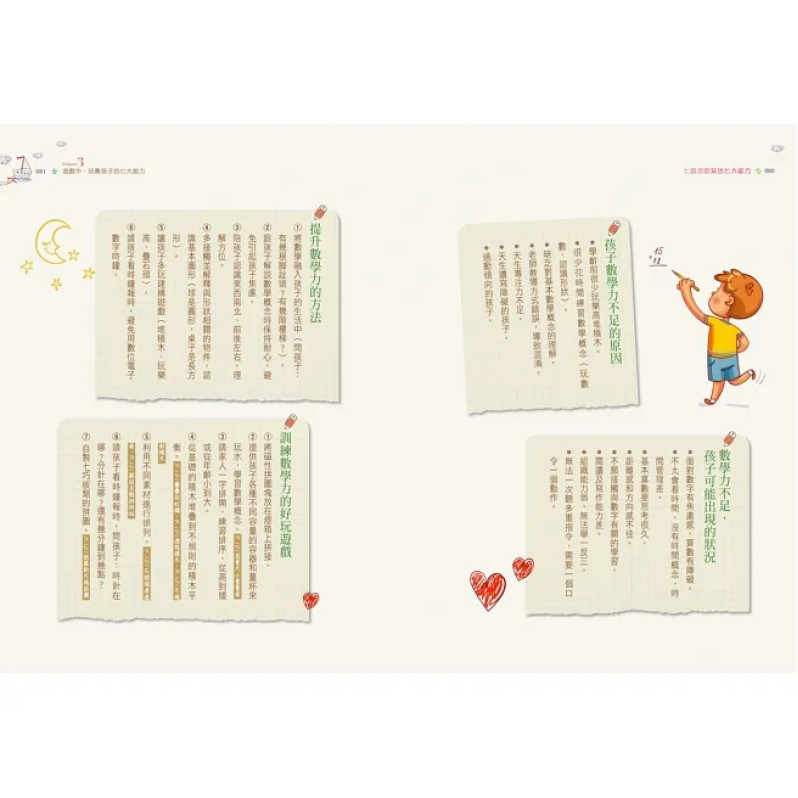 七歲決定孩子的七大能力
孩子數學力不足的原因
● 學齡前很少玩樂高堆積木。
● 很少花時間練習數學概念（玩數
數、認識形狀）。
● 缺乏對基本數學概念的理解。
● 老師教導方式錯誤，導致混淆。
● 天生專注力不足。
● 天生讀寫障礙的孩子。
● 過動傾向的孩子。
15
18
數學力不足，
孩子可能出現的狀況
● 面對數字有焦慮感，算數有障礙。
● 不太會看時間，沒有時間概念，時
間管理差。
● 基本算數要思考很久。
● 距離感和方向感不佳。
● 不願接觸與數字有關的學習。
● 閱讀及寫作能力差。
● 組織能力弱，無法舉一反三。
● 無法一次聽多重指令，需要一個口
令一個動作。
081
Chapter 3
遊戲中，培養孩子的七大能力
提升數學力的方法
① 將數學融入孩子的生活中（問孩子：
有幾根腳趾頭？有幾階樓梯？）。
② 跟孩子解說數學概念時保持耐心，避
免引起孩子焦慮。
③ 陪孩子認識東西南北、前後左右，理
解方位。
④ 多接觸並解釋與形狀相關的物件，認
識基本圖形（球是圓形，桌子是長方
形）。
⑤ 讓孩子多玩建構遊戲（堆積木、玩樂
高、疊石頭）。
⑥ 請孩子看時鐘報時，避免用數位電子
數字時鐘。
訓練數學力的好玩遊戲
① 將磁性拼圖塊放在燈箱上拼接。
② 提供孩子各種不同容量的容器和量杯來
玩水，學習數學概念。
③ 請家人一字排開，練習排序，從高到矮
或從年齡小到大。
④ 從基礎的積木堆疊到不規則的積木平
衡。
⑤ 利用不同素材進行排列。
⑥ 請孩子看時鐘報時，問孩子：時針在
哪？分針在哪？還有幾分鐘到幾點？
⑦ 自製七巧板類的拼圖。